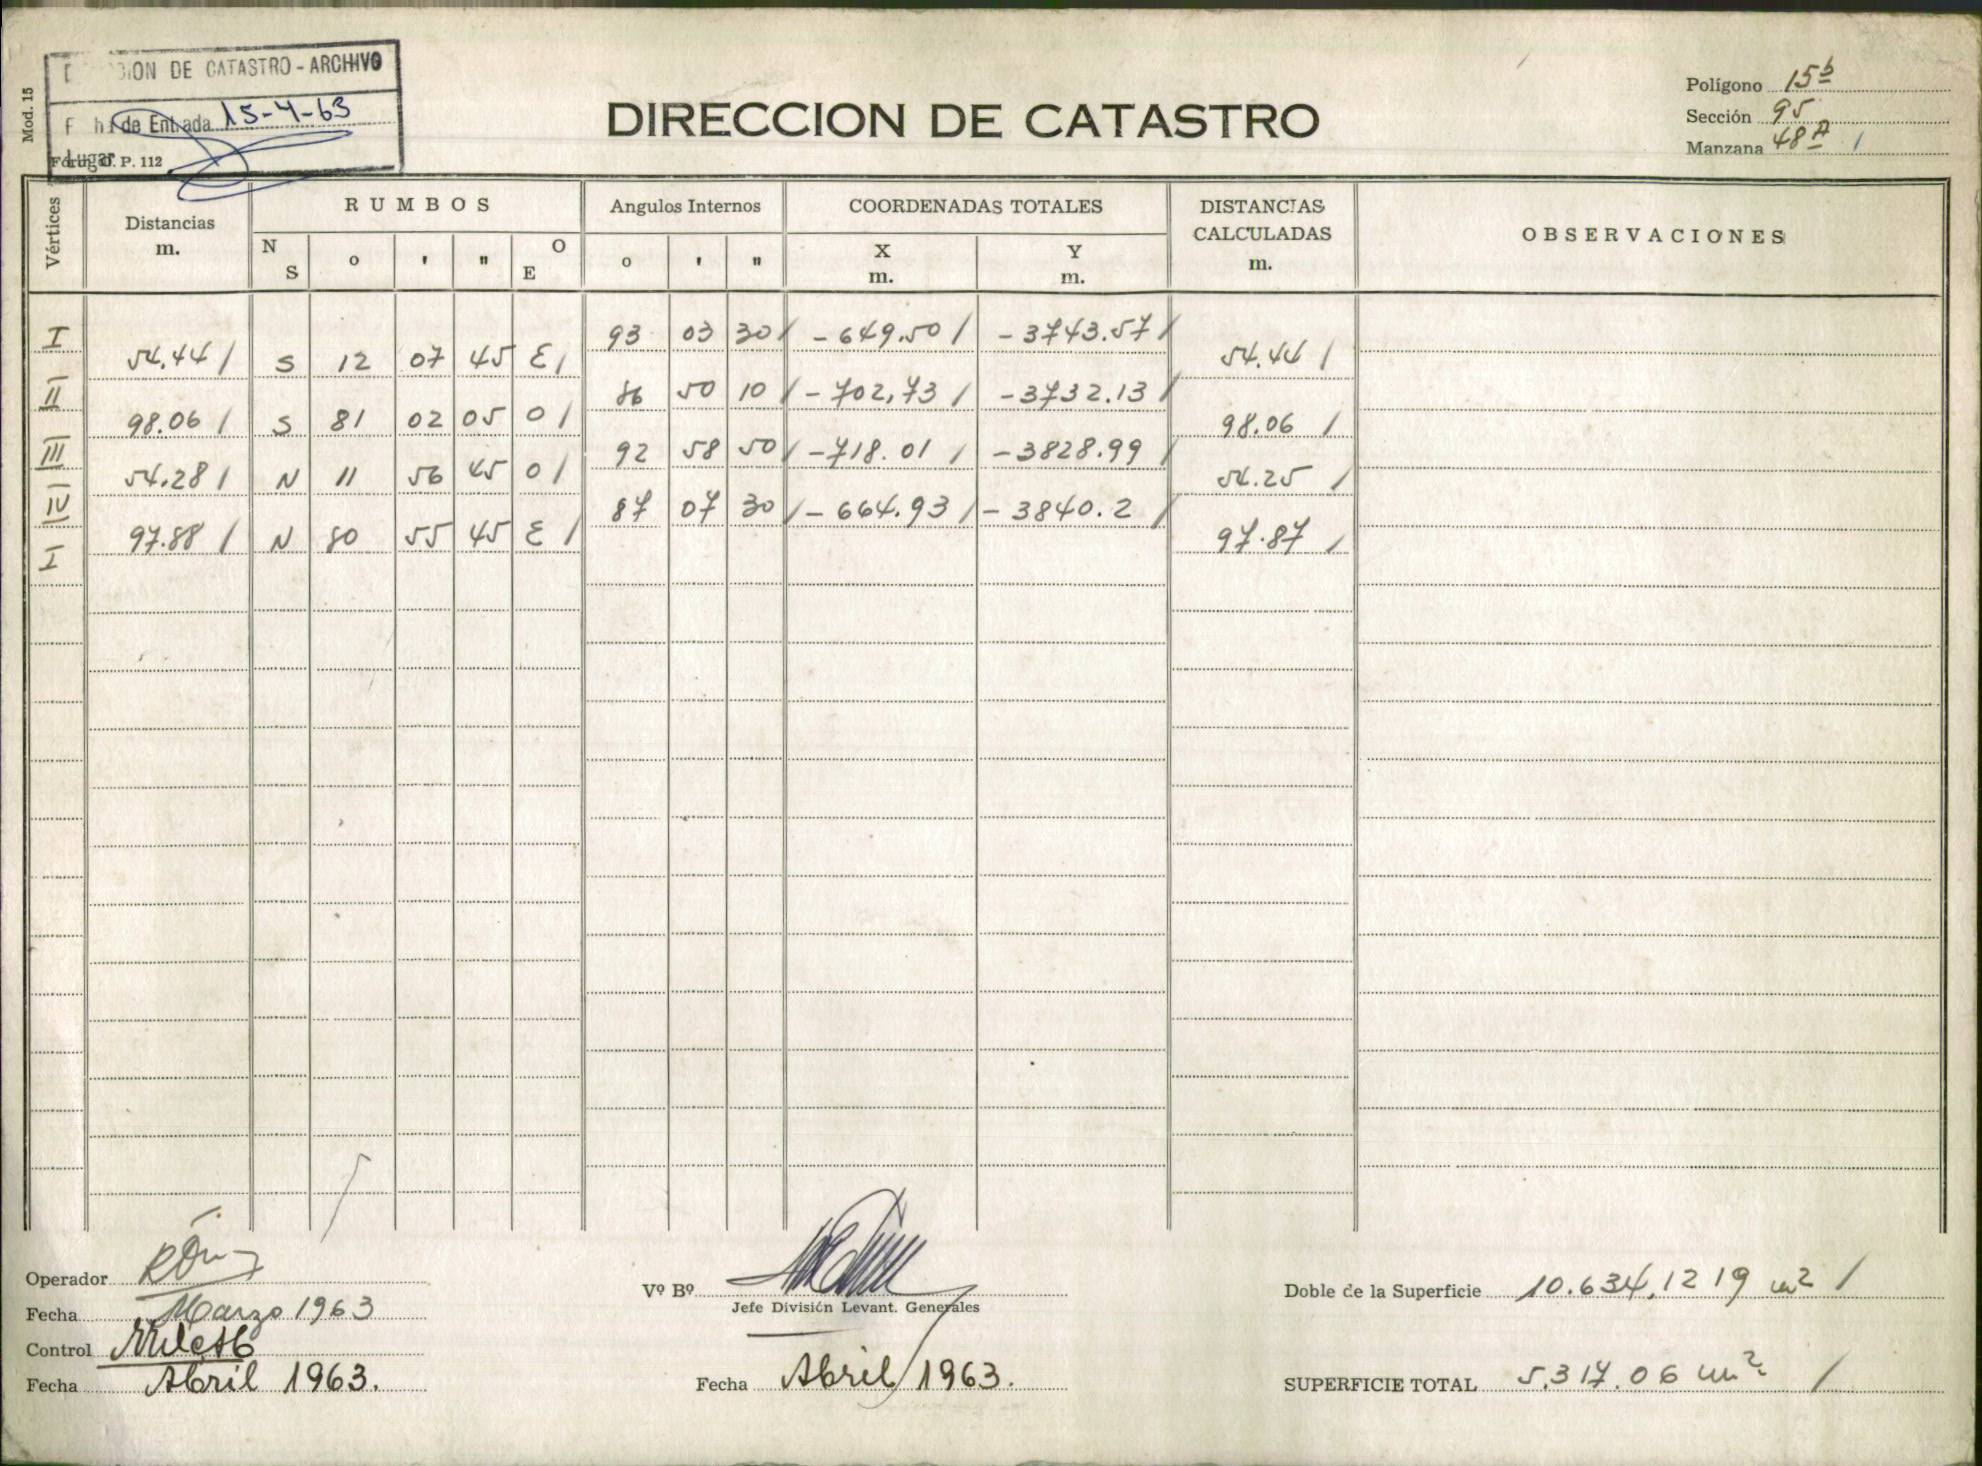 Mod. 15
ION DE CATASTRO - ARCHIVO
de Entrada 15-4-63
Lugar
Form. O. P. 112
DIRECCION DE CATASTRO
Polígono 15b
Sección 95
Manzana 48A /
Vértices
Distancias
m.
RUMBOS
N S
o ' "
O E
Angulos Internos
o ' "
COORDENADAS TOTALES
X
m.
Y
m.
DISTANCIAS
CALCULADAS
m.
OBSERVACIONES
I 93 03 30 / -649.50 / -3743.57 /
54.44 / S 12 07 45 E / 54.44 /
II 86 50 10 / -702,73 / -3732.13 /
98.06 / S 81 02 05 O / 98.06 /
III 92 58 50 / -718.01 / -3828.99 /
54.28 / N 11 56 45 O / 54.25 /
IV 87 07 30 / -664.93 / -3840.2 /
97.88 / N 80 55 45 E / 97.87 /
I
Operador
Fecha Marzo 1963
Control
Fecha Abril 1963.
Vº Bº
Jefe División Levant. Generales
Fecha Abril 1963.
Doble de la Superficie 10.634,1219 m2 /
SUPERFICIE TOTAL 5.317.06 m2 /